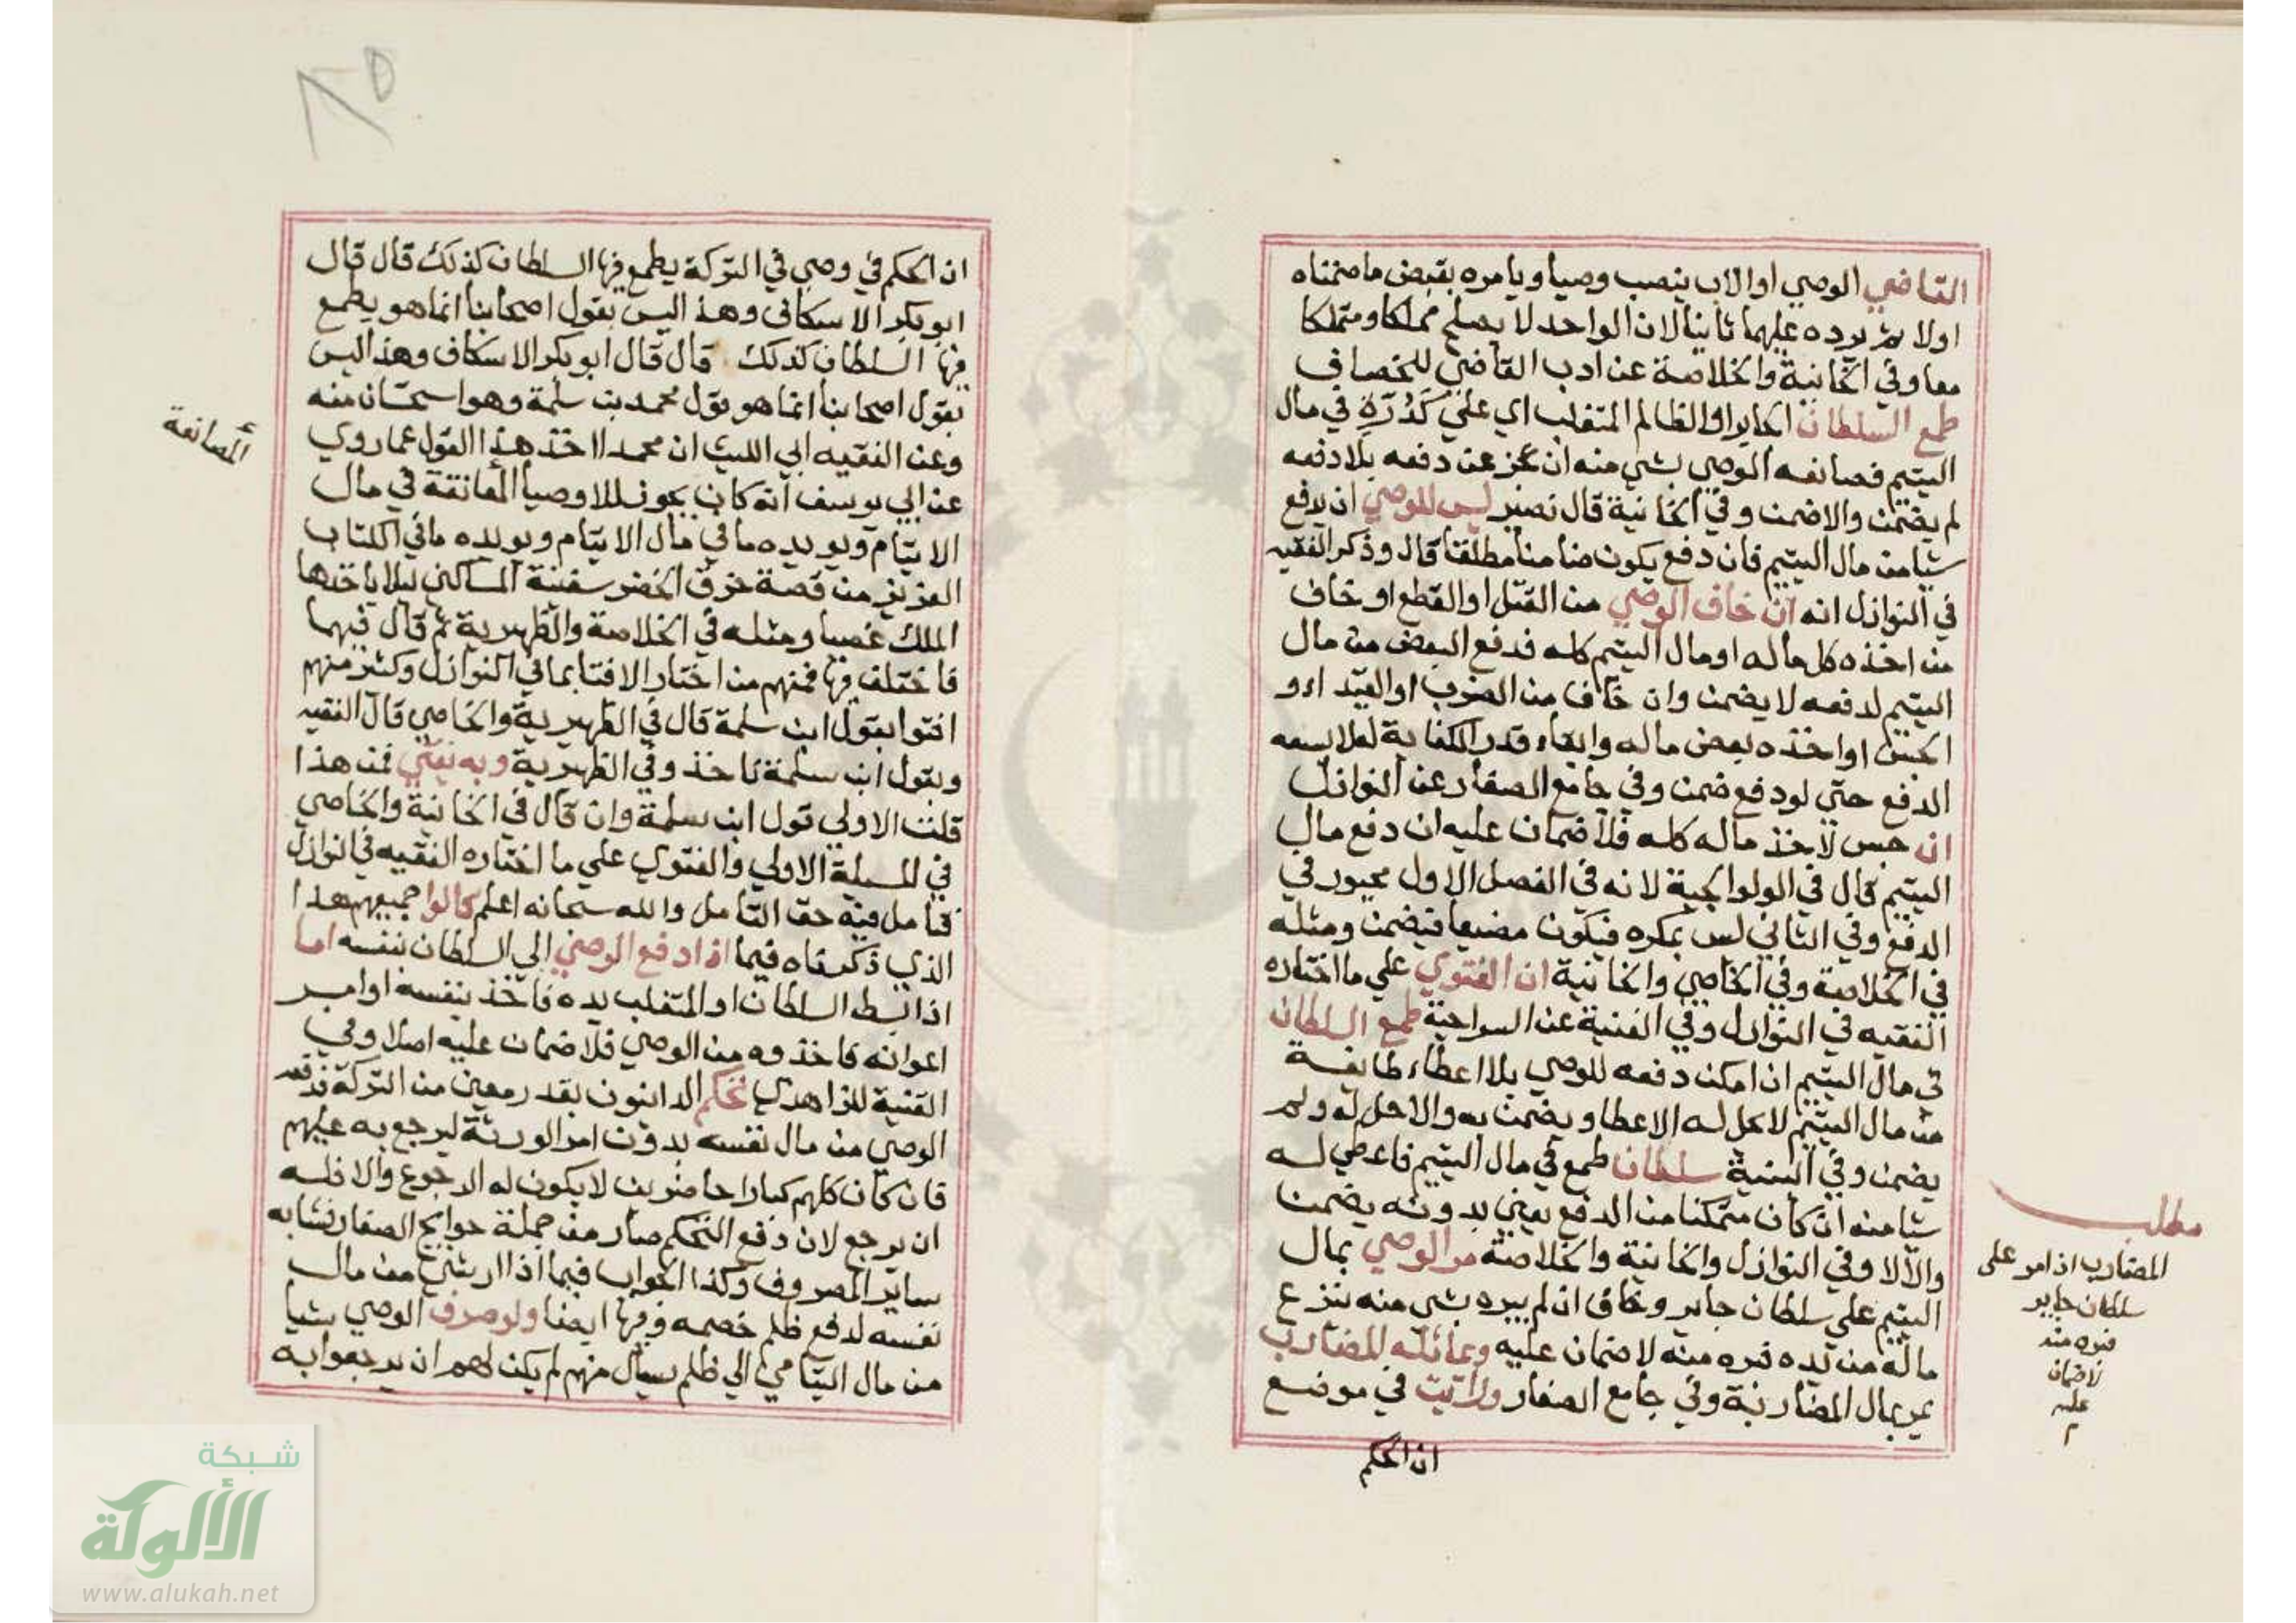 القاضي الوصي او الاب ينصب وصيا ويامره بقبض ما ضمناه
اولا ثم يرده عليهما ثانيا لان الواحد لا يصلح مملكا ومتملكا
معا وفي الخانية والخلاصة عن ادب القاضي للخصاف
طمع السلطان الجاير او الظالم المتغلب اي علي كدرة في مال
اليتيم فصانعه الوصي بشي منه ان عجز عن دفعه بلا دفعه
لم يضمن والا ضمن وفي الخانية قال نصير ليس للوصي ان يدفع
شيا من مال اليتيم فان دفع يكون ضامنا مطلقا قال وذكر الفقيه
في النوازل انه ان خاف الوصي من القتل او القطع او خاف
من اخذه كل ماله او مال اليتيم كله فدفع البعض من مال
اليتيم لدفعه لا يضمن وان خاف من الضرب او القيد او
الحبس او اخذه بعض ماله وابقاء قدر الكفاية له لا يسعه
الدفع حتي لو دفع ضمن وفي جامع الصغار عن النوازل
ان حبس لاخذ ماله كله فلا ضمان عليه ان دفع مال
اليتيم قال في الولوالجية لانه في الفصل الاول مجبور في
الدفع وفي الثاني ليس بمكره فيكون مضيعا فيضمن ومثله
في الخلاصة وفي الخاصي والخانية ان الفتوي علي ما اختاره
الفقيه في النوازل وفي القنية عن السراجية طمع السلطان
في مال اليتيم ان امكن دفعه للوصي بلا اعطاء طايفة
من مال اليتيم لا يحل له الاعطا ويضمن به والا حل له ولم
يضمن وفي المنية سلطان طمع في مال اليتيم فاعطي له
شيا منه ان كان متمكنا من الدفع يعني بدونه يضمن
والا لا وفي النوازل والخانية والخلاصة مر الوصي بمال
اليتيم علي سلطان جاير وخاف ان لم يبره بشي منه ينزع
ماله من يده فبره منه لا ضمان عليه وعائله للمضارب
يمر بمال المضاربة وفي جامع الصغار ورايت في موضع
ان الحكم
مطلب
المضارب اذا مر على
سلطان جاير
فبره منه
لا ضمان
عليه
م
ان الحكم في وصي في التركة يطمع فيها السلطان كذلك قال قال
ابو بكر الاسكافي وهذا ليس بقول اصحابنا انما هو يطمع
فيها السلطان كذلك قال قال ابو بكر الاسكاف وهذا ليس
بقول اصحابنا انما هو قول محمد بن سلمة وهو استحسان منه
وعن الفقيه ابي الليث ان محمدا اخذ هذا القول عما روي
عن ابي يوسف انه كان يجوز للاوصيا المصانعة في مال
الايتام ويويده ما في مال الايتام ويويده ما في الكتاب
العزيز من قصة خرق الخضر سفينة المساكين ليلا ياخذها
الملك غصبا ومثله في الخلاصة والظهيرية ثم قال فيهما
فاختلف فيها فمنهم من اختار الافتا بما في النوازل وكثير منهم
افتوا بقول ابن سلمة قال في الظهيرية والخاصي قال الفقيه
وبقول ابن سلمة ناخذ وفي الظهيرية وبه نفتي فمن هذا
قلت الاولي قول ابن سلمة وان قال في الخانية والخاصي
في المسيلة الاولي والفتوي علي ما اختاره الفقيه في النوازل
فتامل فيه حق التامل والله سبحانه اعلم قالوا جميعهم هذا
الذي ذكرناه فيما اذا دفع الوصي الي السلطان بنفسه اما
اذا بسط السلطان او المتغلب يده فاخذ بنفسه او امر
اعوانه فاخذوه من الوصي فلا ضمان عليه اصلا وفي
القنية للزاهدي تحكم الداينون بقدر معين من التركة فدفعه
الوصي من مال نفسه بدون امر الورثة ليرجع به عليهم
فان كان كلهم كبارا حاضرين لا يكون له الرجوع والا فله
ان يرجع لان دفع التحكم صار من جملة حوايج الصغار فشابه
ساير المصروف وكذا الجواب فيما اذا ارشي من مال
نفسه لدفع ظلم خصمه وفيها ايضا ولو صرف الوصي شيا
من مال اليتامي الي ظلم يسال منهم لم يكن لهم ان يرجعوا به
المصانعة
٢٥
شبكة
الألوكة
www.alukah.net